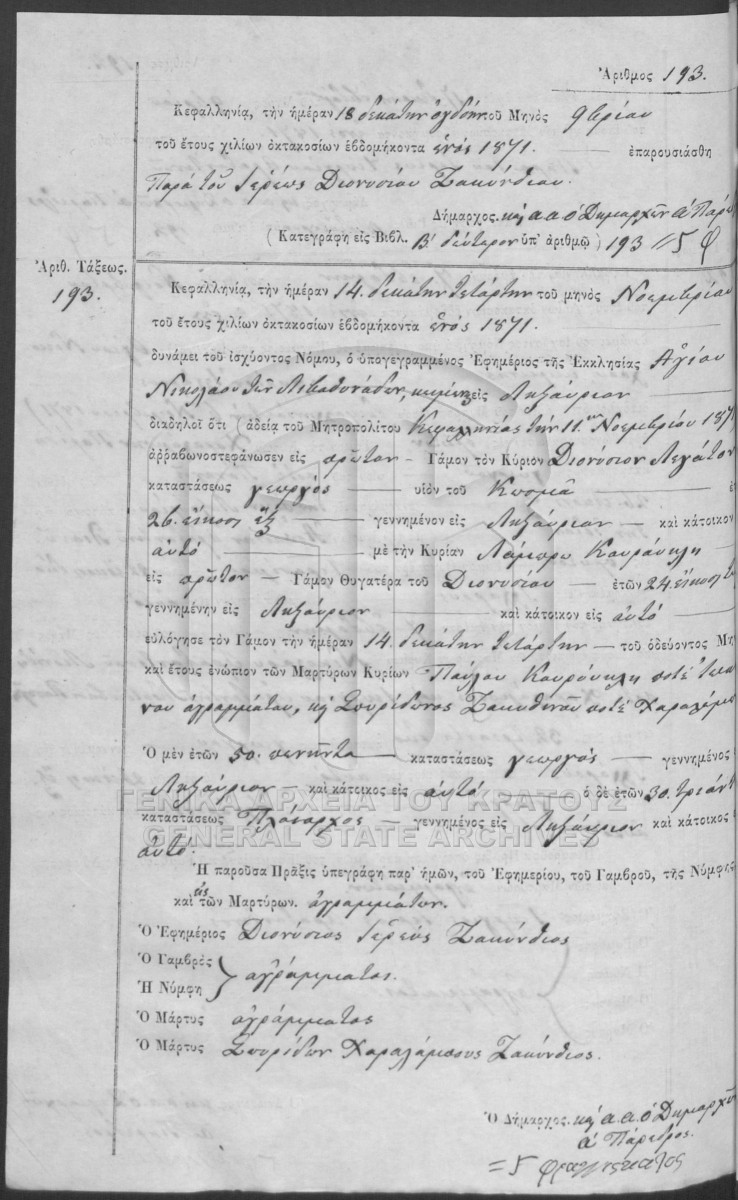 Ἀριθμος 193.
Κεφαλληνία, τὴν ἡμέραν 18 δεκάτην ὀγδόην τοῦ Μηνὸς 9βρίου
τοῦ ἔτους χιλίων ὀκτακοσίων ἑβδομήκοντα ἑνός 1871. ἐπαρουσιάσθη
Παρὰ τοῦ Ἱερέως Διονυσίου Ζακύνθιου.
Δήμαρχος. κ α α ὁ Δημαρχῶν α Πάρε
( Κατεγράφη εἰς Βιβλ. Β' δεύτερον ὑπ' ἀριθμῷ ) 193
Ἀριθ. Τάξεως.
193.
Κεφαλληνία, τὴν ἡμέραν 14. δεκάτην τετάρτην τοῦ μηνὸς Νοεμβρίου
τοῦ ἔτους χιλίων ὀκτακοσίων ἑβδομήκοντα ἑνός 1871.
δυνάμει τοῦ ἰσχύοντος Νόμου, ὁ ὑπογεγραμμένος Ἐφημέριος τῆς Ἐκκλησίας Ἁγίου
Νικολάου τῶν εἰς Ληξούριον
διαδηλοῖ ὅτι ( ἀδείᾳ τοῦ Μητροπολίτου Κεφαλληνίας τὴν 11 Νοεμβρίου 187
ἀῤῥαβωνοστεφάνωσεν εἰς πρῶτον Γάμον τὸν Κύριον Διονύσιον
καταστάσεως γεωργὸς υἱὸν τοῦ Κοσμᾶ
26. εἴκοσι ἕξ γεννημένον εἰς Ληξούριον καὶ κάτοικον
αὐτό μὲ τὴν Κυρίαν Λάμπρω
εἰς πρῶτον Γάμον Θυγατέρα τοῦ Διονυσίου ἐτῶν 24. εἴκοσι τ
γεννημένην εἰς Ληξούριον καὶ κάτοικον εἰς αὐτό
εὐλόγησε τὸν Γάμον τὴν ἡμέραν 14. δεκάτην τετάρτην τοῦ ὁδεύοντος Μη
καὶ ἔτους ἐνώπιον τῶν Μαρτύρων Κυρίων Παύλου ποτέ
ἀγραμμάτου, κ Σπυρίδωνος Ζακυθινοῦ ποτέ Χαραλάμπ
Ὁ μὲν ἐτῶν 50. πενῆντα καταστάσεως γεωργός γεννημένος
Ληξούριον καὶ κάτοικος εἰς αὐτό ὁ δὲ ἐτῶν 30. τριάντ
καταστάσεως Πλοίαρχος γεννημένος εἰς Ληξούριον καὶ κάτοικος
αὐτό.
ΓΕΝΙΚΑ ΑΡΧΕΙΑ ΤΟΥ ΚΡΑΤΟΥΣ
GENERAL STATE ARCHIVES
Ἡ παροῦσα Πρᾶξις ὑπεγράφη παρ' ἡμῶν, τοῦ Ἐφημερίου, τοῦ Γαμβροῦ, τῆς Νύμφης
καὶ τῶν Μαρτύρων. ἀγραμμάτων.
Ὁ Ἐφημέριος Διονύσιος Ἱερεύς Ζακύνθιος
Ὁ Γαμβρὸς
ἀγράμματοι.
Ἡ Νύμφη
Ὁ Μάρτυς ἀγράμματος
Ὁ Μάρτυς Σπυρίδων Χαραλάμπους Ζακύνθιος.
Ὁ Δήμαρχος. κ α. α. ὁ Δημαρχῶν
α Πάρεδρος.